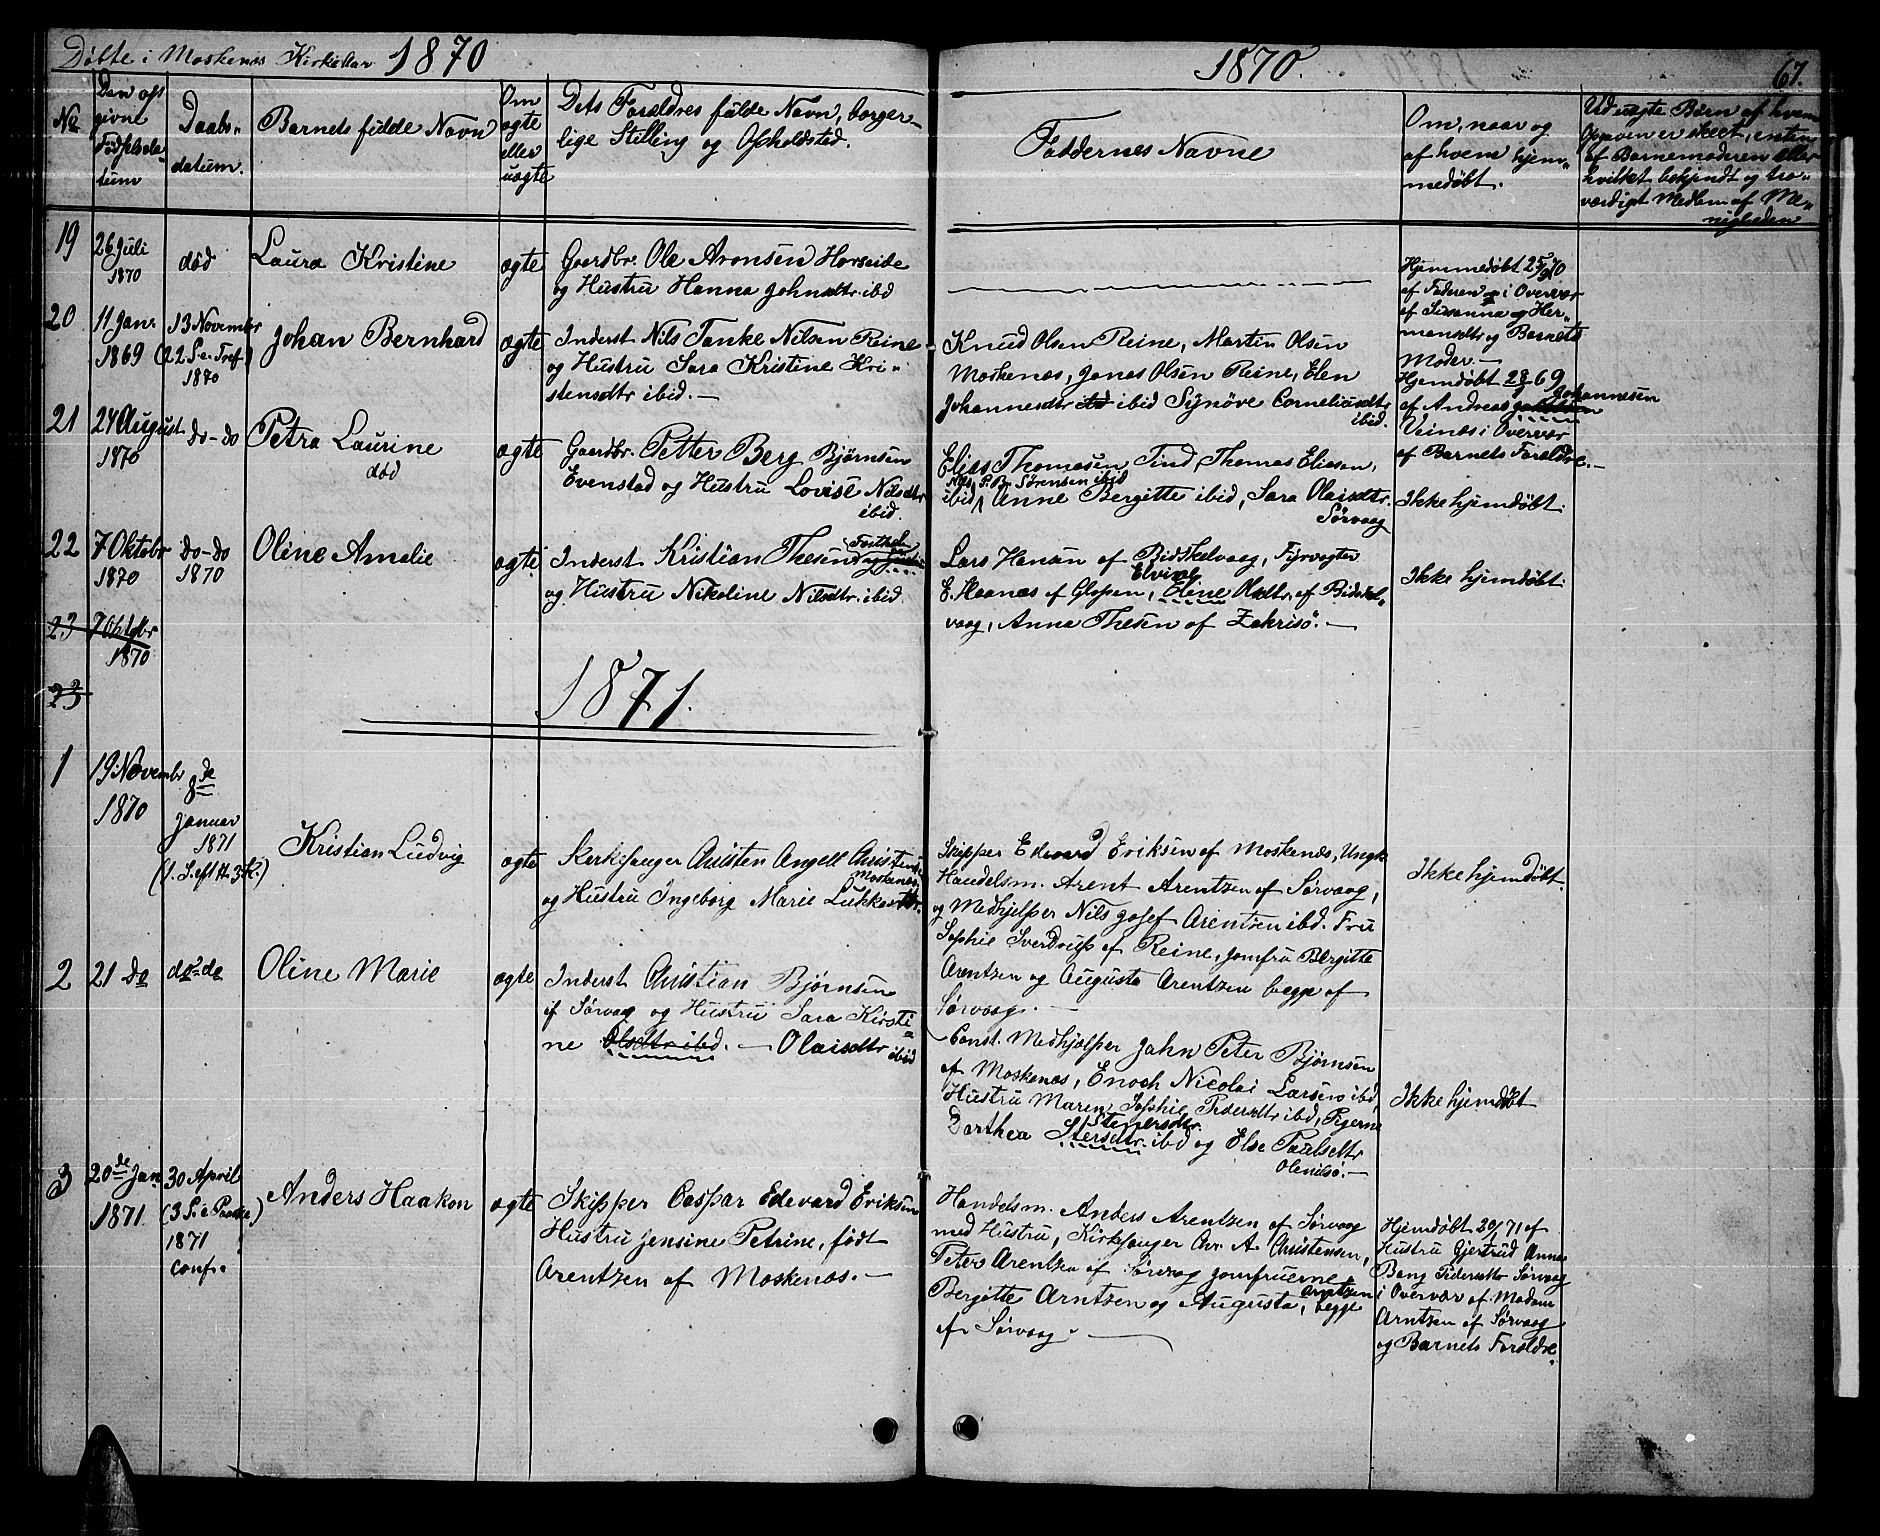 Døbte i Moskenæs Kirke aar 1870
1870.
67.
No
Den op-
givne
Fødselsda-
tum
Daabs-
datum.
Barnets fulde Navn
Om
ægte
eller
uægte
Dets Forældres fulde Navn, borger-
lige Stilling og Opholdsted.
Faddernes Navne
Om, naar og
af hvem hjem-
medøbt.
Ved uægte Børn af hvem
Opgaven er skeet, enten
af Barnemoderen eller
hvilket bekjendt og tro-
værdigt Medlem af Me-
nigheden
19
26 Juli
1870
død
Laura Kristine
ægte
Gaardbr. Ole Aronsen Horseide
og Hustru Hanna Johnsdtr. ibid
Hjemmedøbt 25/9 70
af Faderen i Overvær
af Susanna Her-
mansdtr og Barnets
Moder.—
20
11 Jan.
1869
13 Novembr
(22 S. e. Tref.)
1870
Johan Bernhard
ægte
Inderst Nils Tanke Nilsen Reine
og Hustru Sara Kristine Kri-
stensdtr ibid.—
Knud Olsen Reine, Martin Olsen
Moskenæs, Jonas Olsen Reine, Elen
Johannesdtr ibid Synøve Corneliusdtr
ibid.
Hjemdøbt 28/ 69
af Andreas Johannesen
Veinæs i Overvær
af Barnets Forældre.—
21
24 August
1870
do-do
Petra Laurine
død
ægte
Gaardbr. Petter Berg Bjørnsen
Evenstad og Hustru Lovise Nilsdtr
ibid.
Elias Thomasen Tind, Thomas Eliasen,
Nils P. B. Sørensen ibid
ibid, Anne Bergitte ibid, Sara Olaisdtr.
Sørvaag
Ikke hjemdøbt.
22
7 Oktobr
1870
do-do
1870
Oline Amalie
ægte
Inderst Kristian Thesen
og Hustru Nikoline Nilsdtr. ibid.
Lars Hansen af Bidskelvaag, Fyrvogter
E. Haanæs af Glopen, Elvine Olsdtr. af Bidskel-
vaag, Anna Thesen af Zakrisø.—
Ikke hjemdøbt.
23
7 Oktobr
1870
23
1871.
1
19. Novembr
1870
8de
Januar
1871
(1. S. eft H. 3 K.)
Kristian Ludvig
ægte
Kirkesanger Christen Angell Christens.
Moskenæs.
og Hustru Ingeborg Marie Lukkasdtr.
Skipper Edevard Eriksen af Moskenæs, Ungk.
Handelsm. Arent Arentzen af Sørvaag,
og Medhjelper Nils Josef Arentzen ibd. Fru
Sophie Sverdrup af Reine, Jomfru Bergitte
Arentzen og Augusta Arentzen begge af
Sørvaag.—
Ikke hjemdøbt.
2
21 Do
do-do
Oline Marie
ægte
Inderst Christian Bjørnsen
af Sørvaag og Hustru Sara Kirsti-
ne Olsdtr ibd.— Olaisdtr
ibid
Const. Medhjælper John Peter Bjørnsen
af Moskenæs, Enoch Nicolai Larsen ibd,
Hustru Maren Sophie Pedersdtr ibd, Pigerne
Stenersdtr.
Dorthea Stersdtr. ibd og Else Paulsdtr
Olenilsø.—
Ikke hjemdøbt
3
20de Jan
1871.
30 April
(3 S. e Paaske)
1871
Conf.
Anders Haakon
ægte
Skipper Caspar Edevard Eriksen
Hustru Jensine Petrine, født
Arentzen af Moskenæs.—
Handelsm. Anders Arentzen af Sørvaag
med Hustru, Kirkesanger Chr. A. Christensen,
Peter Arentzen af Sørvaag Jomfruerne
Bergitte Arntzen og Augusta Arntzen, begge
af Sørvaag.—
Hjemdøbt 20/ 71 af
Hustru Gjertrud Anna
Bang Pedersdtr Sørvaag
i Overvær af Madam
Arntzen af Sørvaag
og Barnets Forældre.